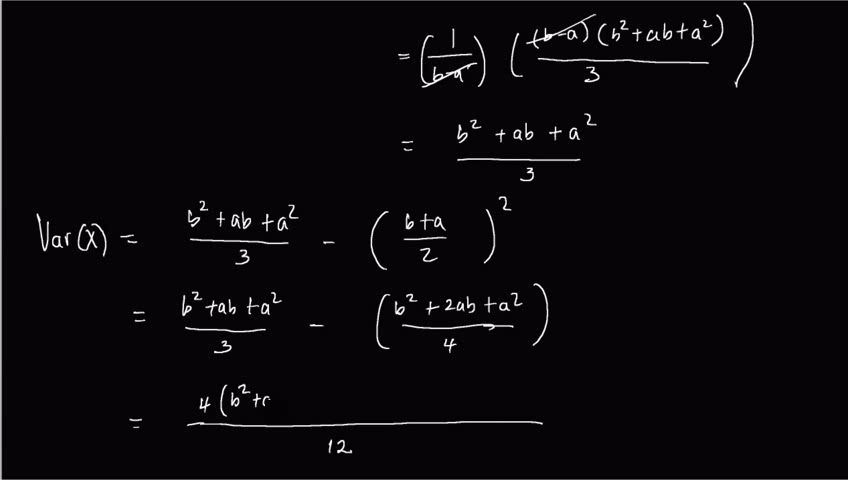 = (1/b-a) ((b-a)(b²+ab+a²)/3)
= b²+ab+a²/3
Var(X) = b²+ab+a²/3 - (b+a/2)²
= b²+ab+a²/3 - (b²+2ab+a²/4)
= 4(b²+ /12